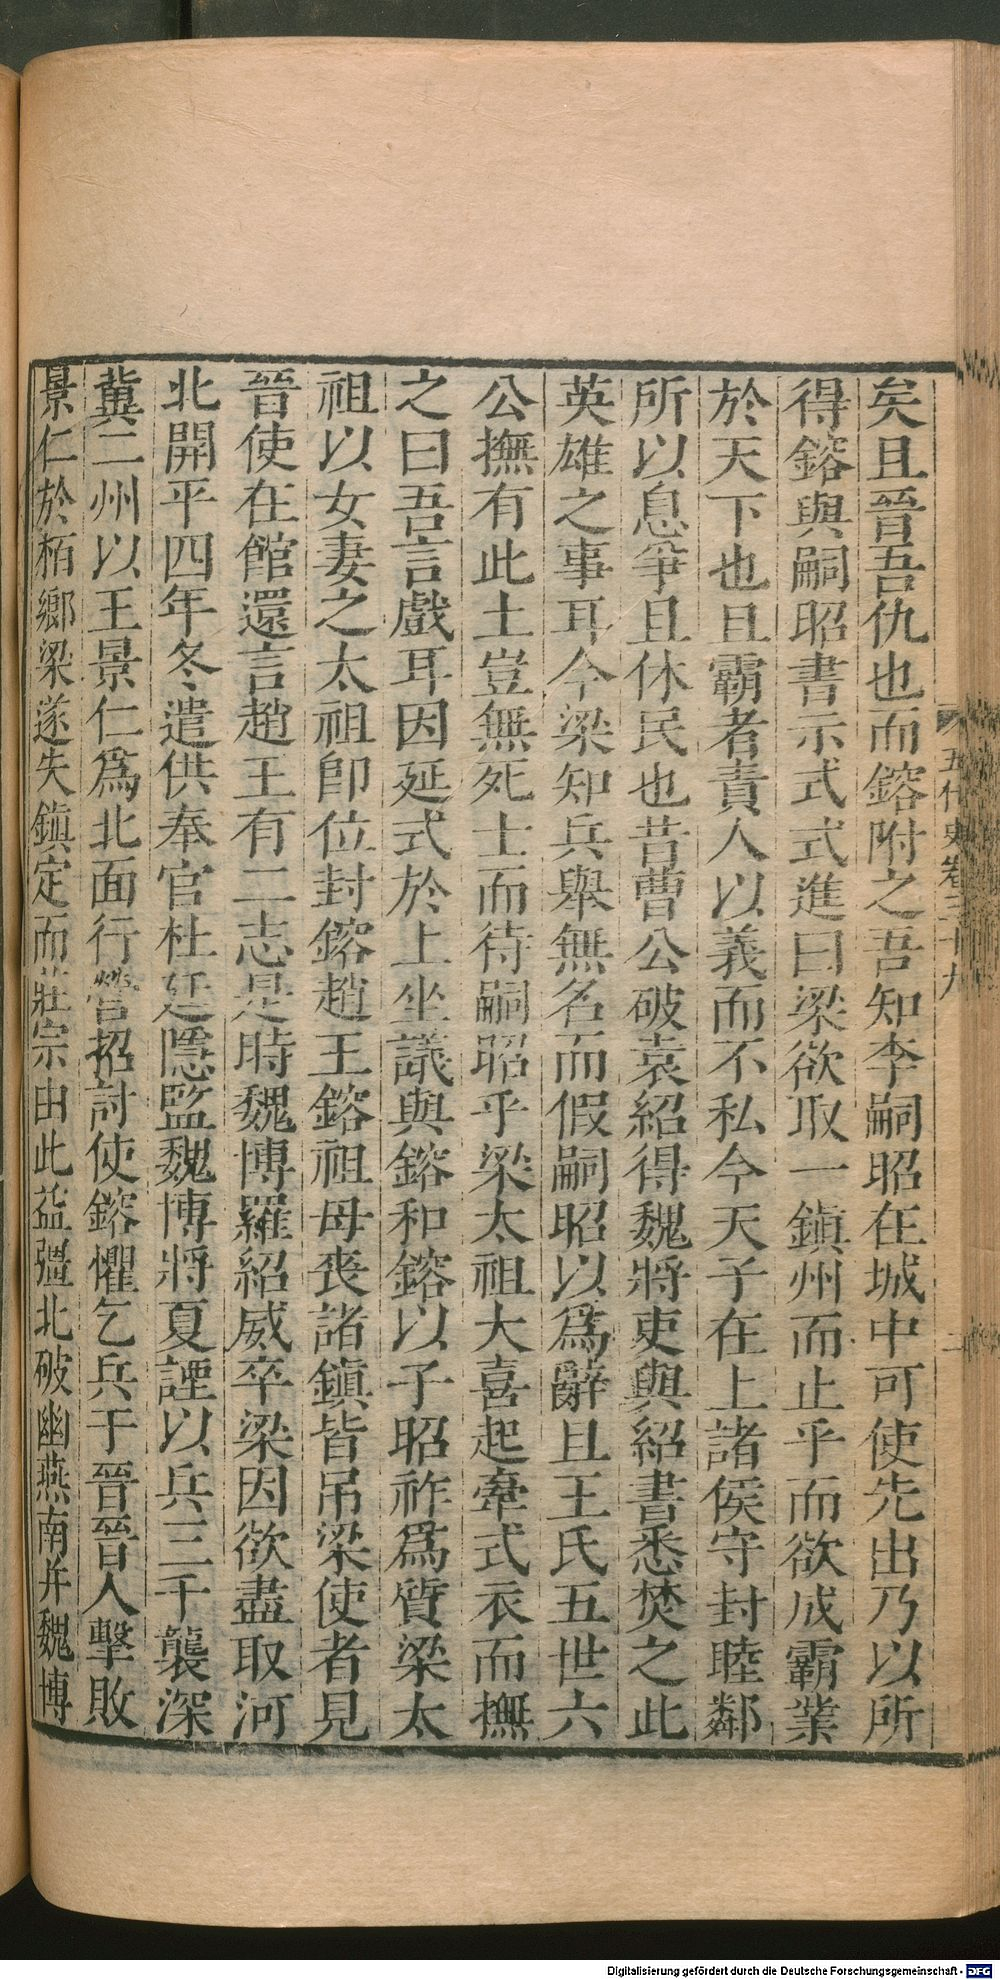 矣且晉吾仇也而鎔附之吾知李嗣昭在城中可使先出乃以所
得鎔與嗣昭書示式式進曰梁欲取一鎮州而止乎而欲成霸業
於天下也且霸者責人以義而不私今天子在上諸侯守封睦鄰
所以息爭且休民也昔曹公破袁紹得魏將吏與紹書悉焚之此
英雄之事耳今梁知兵舉無名而假嗣昭以爲辭且王氏五世六
公撫有此土豈無死士而待嗣昭乎梁太祖大喜起牽式衣而撫
之曰吾言戲耳因延式於上坐議與鎔和鎔以子昭祚爲質梁太
祖以女妻之太祖卽位封鎔趙王鎔祖母喪諸鎮皆吊梁使者見
晉使在館還言趙王有二志是時魏博羅紹威卒梁因欲盡取河
北開平四年冬遣供奉官杜廷隱監魏博將夏諲以兵三千襲深
冀二州以王景仁爲北面行營招討使鎔懼乞兵于晉晉人擊敗
景仁於栢鄉梁遂失鎮定而莊宗由此益彊北破幽燕南并魏博
五代史卷三十九
二
Digitalisierung gefördert durch die Deutsche Forschungsgemeinschaft - DFG